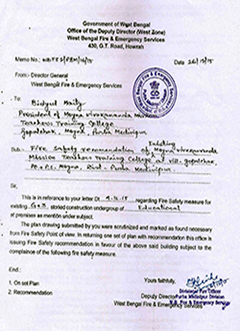 Government of West Bengal
Office of the Deputy Director (West Zone)
West Bengal Fire & Emergency Services
430, G.T. Road, Howrah
Memo No.: Date :
From:- Director General
West Bengal Fire & Emergency Services
To
President of Moyna
Teachers Training College
Gopalchak, Moyna, Purba Medinipur
Sub :- Fire Safety recommendation of
Mission Teachers Training College at vill- gopalchak,
Moyna, Dist- Purba Medinipur.
This is in reference to your letter Dt regarding Fire Safety measure for
existing G+ storied construction undergoing of Educational
of premises as mention under subject.
The plan drawing submitted by you were scrutinized and marked as found necessary
from Fire Safety Point of view. In returning one set of plan with recommendation this office is
issuing Fire Safety recommendation in favour of the above said building subject to the
compliance of the following fire safety measure.
End :
1. On set Plan
2. Recommendation
Yours faithfully,
Divisional Fire Officer
Deputy Director
Purba Medinipur Division
West Bengal Fire & Emergency Services